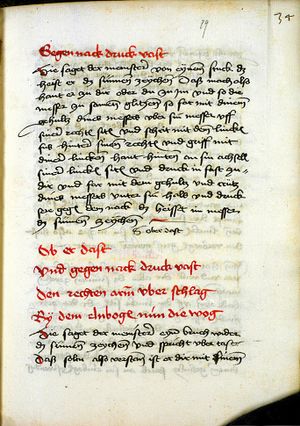 79
38
Gegen nack druck vast
Die saget der meinster von eynem stuck dz
heist er dz sunnen zeychen Das mach also
haut er zu dir oder du zu im und so die
messer zu samen glitzen so far mit dinem
gehultz dines messers uber sin messer uff
siner rechte site und schrit mit dem lincken
fus hinder sinen rechten und griff mit
diner lincken hant hinten an sin achsell
siner lincken siten und druck in fast zu
dir und far mit dem gehultz und crütz
dines messers unter sie hals und druck
der nack dz heisset im messer
dz sunnen zeychen
Ob er dast
Und gegen nack druck vast
Den rechten arm uber schlag
By dem Elnbogen nim die wog
Die saget der meinster eyn bruch wider
dz sunnen zeychen und spricht uber tast
Daß soltu also verstan ist er dir mit sinem